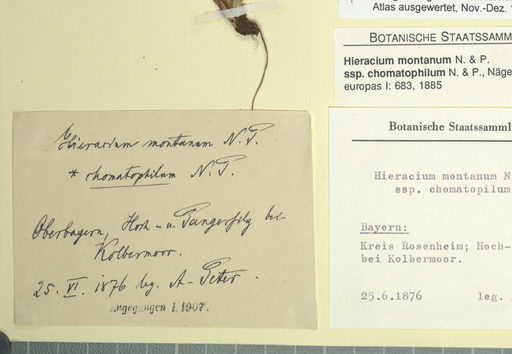 Atlas ausgewertet, Nov.-Dez.
BOTANISCHE STAATSSAMM
Hieracium montanum N. & P.
ssp. chomatophilum N. & P., Näge
europas I: 683, 1885
Hieracium montanum N. P.
* chomatophilum N. P.
Oberbayern, Hoch- u. Pangerfilz bei
Kolbermoor.
25. VI. 1876 leg. A. Peter.
Eingegangen I. 1907.
Botanische Staatssamml
Hieracium montanum N
ssp. chomatopilum
Bayern:
Kreis Rosenheim; Hoch-
bei Kolbermoor.
25.6.1876 leg.